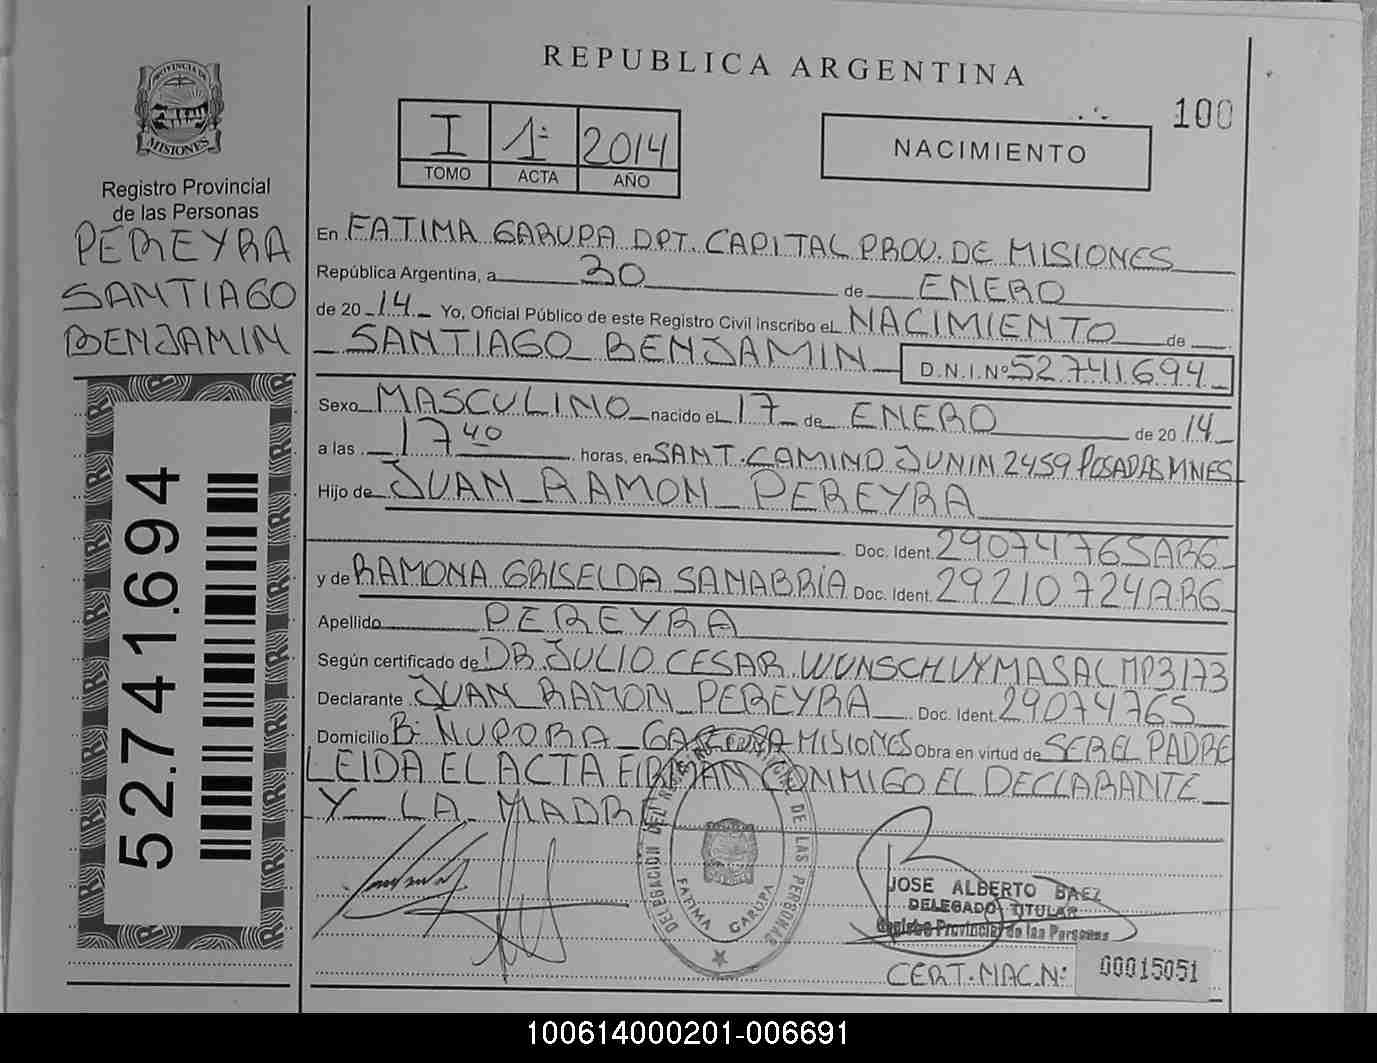 REPUBLICA ARGENTINA
100
PROVINCIA DE
MISIONES
Registro Provincial
de las Personas
PEREYRA
SANTIAGO
BENJAMIN
52.741.694
I 1ª 2014
TOMO ACTA AÑO
NACIMIENTO
En FATIMA GARUPA DPT. CAPITAL PROV. DE MISIONES
República Argentina, a 30 de ENERO
de 20 14 Yo, Oficial Público de este Registro Civil inscribo el NACIMIENTO de
SANTIAGO BENJAMIN D.N.I.Nº 52741694
Sexo MASCULINO nacido el 17 de ENERO de 20 14
a las 17 40 horas, en SANT. CAMINO JUNIN 2459 POSADAS MNES
Hijo de JUAN RAMON PEREYRA
Doc. Ident. 29074765 ARG
y de RAMONA GRISELDA SANABRIA Doc. Ident. 29210724 ARG
Apellido PEREYRA
Según certificado de DR JULIO CESAR WUNSCH MP3173
Declarante JUAN RAMON PEREYRA Doc. Ident. 29074765
Domicilio Bº GARUPA MISIONES Obra en virtud de SER EL PADRE
LEIDA EL ACTA FIRMAN CONMIGO EL DECLARANTE
Y LA MADRE
DELEGACION DEL DE LAS PERSONAS
FATIMA GARUPA
JOSE ALBERTO BAEZ
DELEGADO TITULAR
Registro Provincial de las Personas
CERT. NAC. Nº 00015051
100614000201-006691